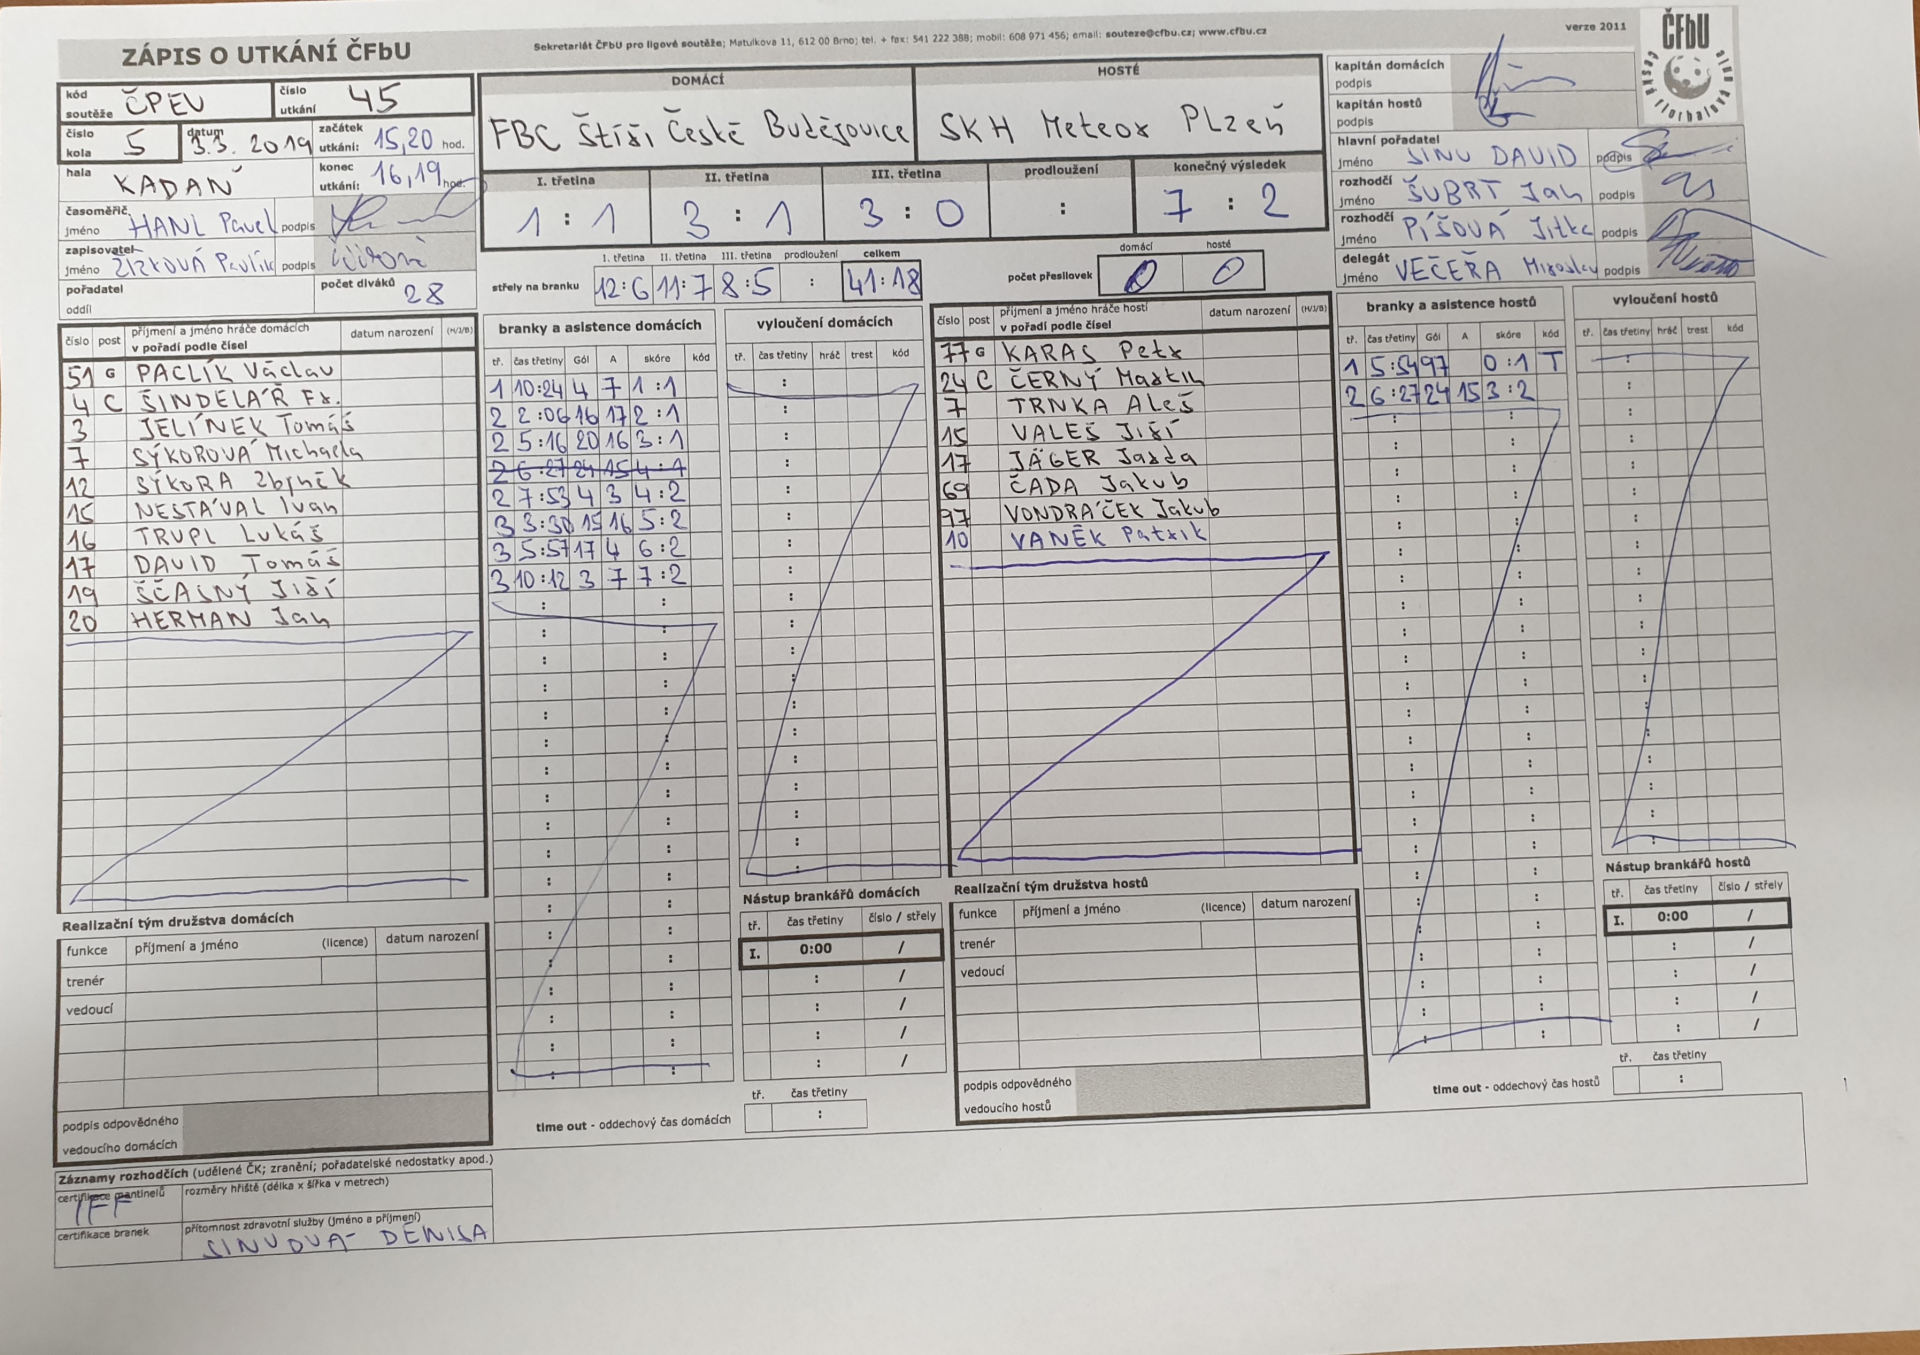 ZÁPIS O UTKÁNÍ ČFbU
Sekretariát ČFbU pro ligové soutěže; Matulkova 11, 612 00 Brno; tel. + fax: 541 222 388; mobil: 608 971 456; email: souteze@cfbu.cz; www.cfbu.cz
verze 2011
ČFbU
kód soutěže ČPEV číslo utkání 45
číslo kola 5 datum 3.3. 2019 začátek utkání: 15,20 hod.
hala KADAŇ konec utkání: 16,19 hod.
časoměřič jméno HANL Pavel podpis
zapisovatel jméno podpis
pořadatel oddíl počet diváků 28
DOMÁCÍ HOSTÉ
FBC Štíři České Budějovice SKH Meteor Plzeň
I. třetina II. třetina III. třetina prodloužení konečný výsledek
1 : 1 3 : 1 3 : 0 : 7 : 2
I. třetina II. třetina III. třetina prodloužení celkem
střely na branku 12:6 11:7 8:5 : 41:18
domácí hosté
počet přesilovek 0 0
kapitán domácích podpis
kapitán hostů podpis
hlavní pořadatel jméno SINU DAVID podpis
rozhodčí jméno ŠUBRT Jan podpis
rozhodčí jméno PÍŠOVÁ Jitka podpis
delegát jméno VEČEŘA Miroslav podpis
číslo post příjmení a jméno hráče domácích v pořadí podle čísel datum narození (H/J/B)
51 G PACLÍK Václav
4 C ŠINDELÁŘ Fr.
3 JELÍNEK Tomáš
7 SÝKOROVÁ Michaela
12 SÝKORA Zbyněk
15 NESTÁVAL Ivan
16 TRUPL Lukáš
17 DAVID Tomáš
19 ŠČASNÝ Jiří
20 HERMAN Jan
branky a asistence domácích
tř. čas třetiny Gól A skóre kód
1 10:24 4 7 1:1
2 2:06 16 17 2:1
2 5:16 20 16 3:1
2 6:27 24 15 4:1
2 7:53 4 3 4:2
3 3:30 15 16 5:2
3 5:57 17 4 6:2
3 10:12 3 7 7:2
vyloučení domácích
tř. čas třetiny hráč trest kód
číslo post příjmení a jméno hráče hostí v pořadí podle čísel datum narození (H/J/B)
77 G KARAS Petr
24 C ČERNÝ Martin
7 TRNKA Aleš
15 VALEŠ Jiří
17 JÄGER Jarda
69 ČADA Jakub
97 VONDRÁČEK Jakub
10 VANĚK Patrik
branky a asistence hostů
tř. čas třetiny Gól A skóre kód
1 5:54 97 0:1 T
2 6:27 24 15 3:2
vyloučení hostů
tř. čas třetiny hráč trest kód
Realizační tým družstva domácích
funkce příjmení a jméno (licence) datum narození
trenér
vedoucí
podpis odpovědného vedoucího domácích
Nástup brankářů domácích
tř. čas třetiny číslo / střely
I. 0:00 /
: /
: /
: /
: /
tř. čas třetiny
time out - oddechový čas domácích :
Realizační tým družstva hostů
funkce příjmení a jméno (licence) datum narození
trenér
vedoucí
podpis odpovědného vedoucího hostů
Nástup brankářů hostů
tř. čas třetiny číslo / střely
I. 0:00 /
: /
: /
: /
: /
tř. čas třetiny
time out - oddechový čas hostů :
Záznamy rozhodčích (udělené ČK; zranění; pořadatelské nedostatky apod.)
certifikace mantinelů IFF rozměry hřiště (délka x šířka v metrech)
certifikace branek přítomnost zdravotní služby (jméno a příjmení)
DENISA